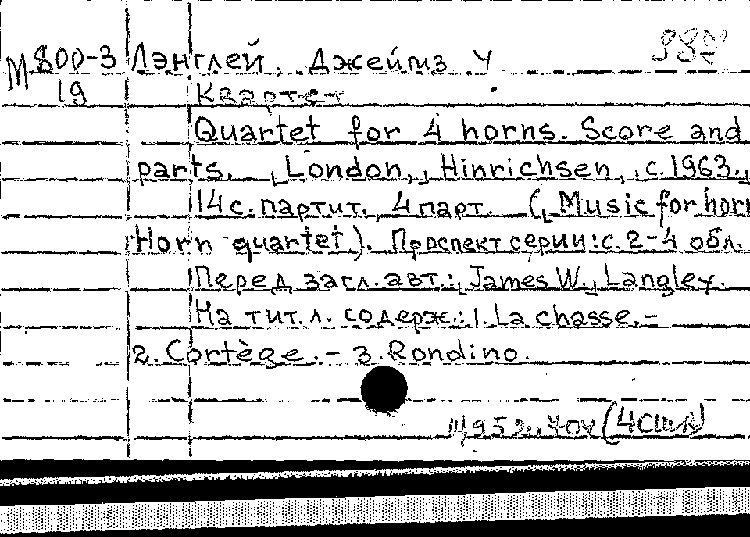 М 800-3 Лэнглей, Джеймз У
19 Квартет
Quartet for 4 horns. Score and
parts. London, Hinrichsen, c. 1963.,
14 с. партит. 4 парт. (Music for horn
Horn quartet). Проспект серии: с. 2-4 обл.
Перед загл. авт.: James W. Langley.
На тит. л. содерж.: 1. La chasse. –
2. Cortège. – 3. Rondino.